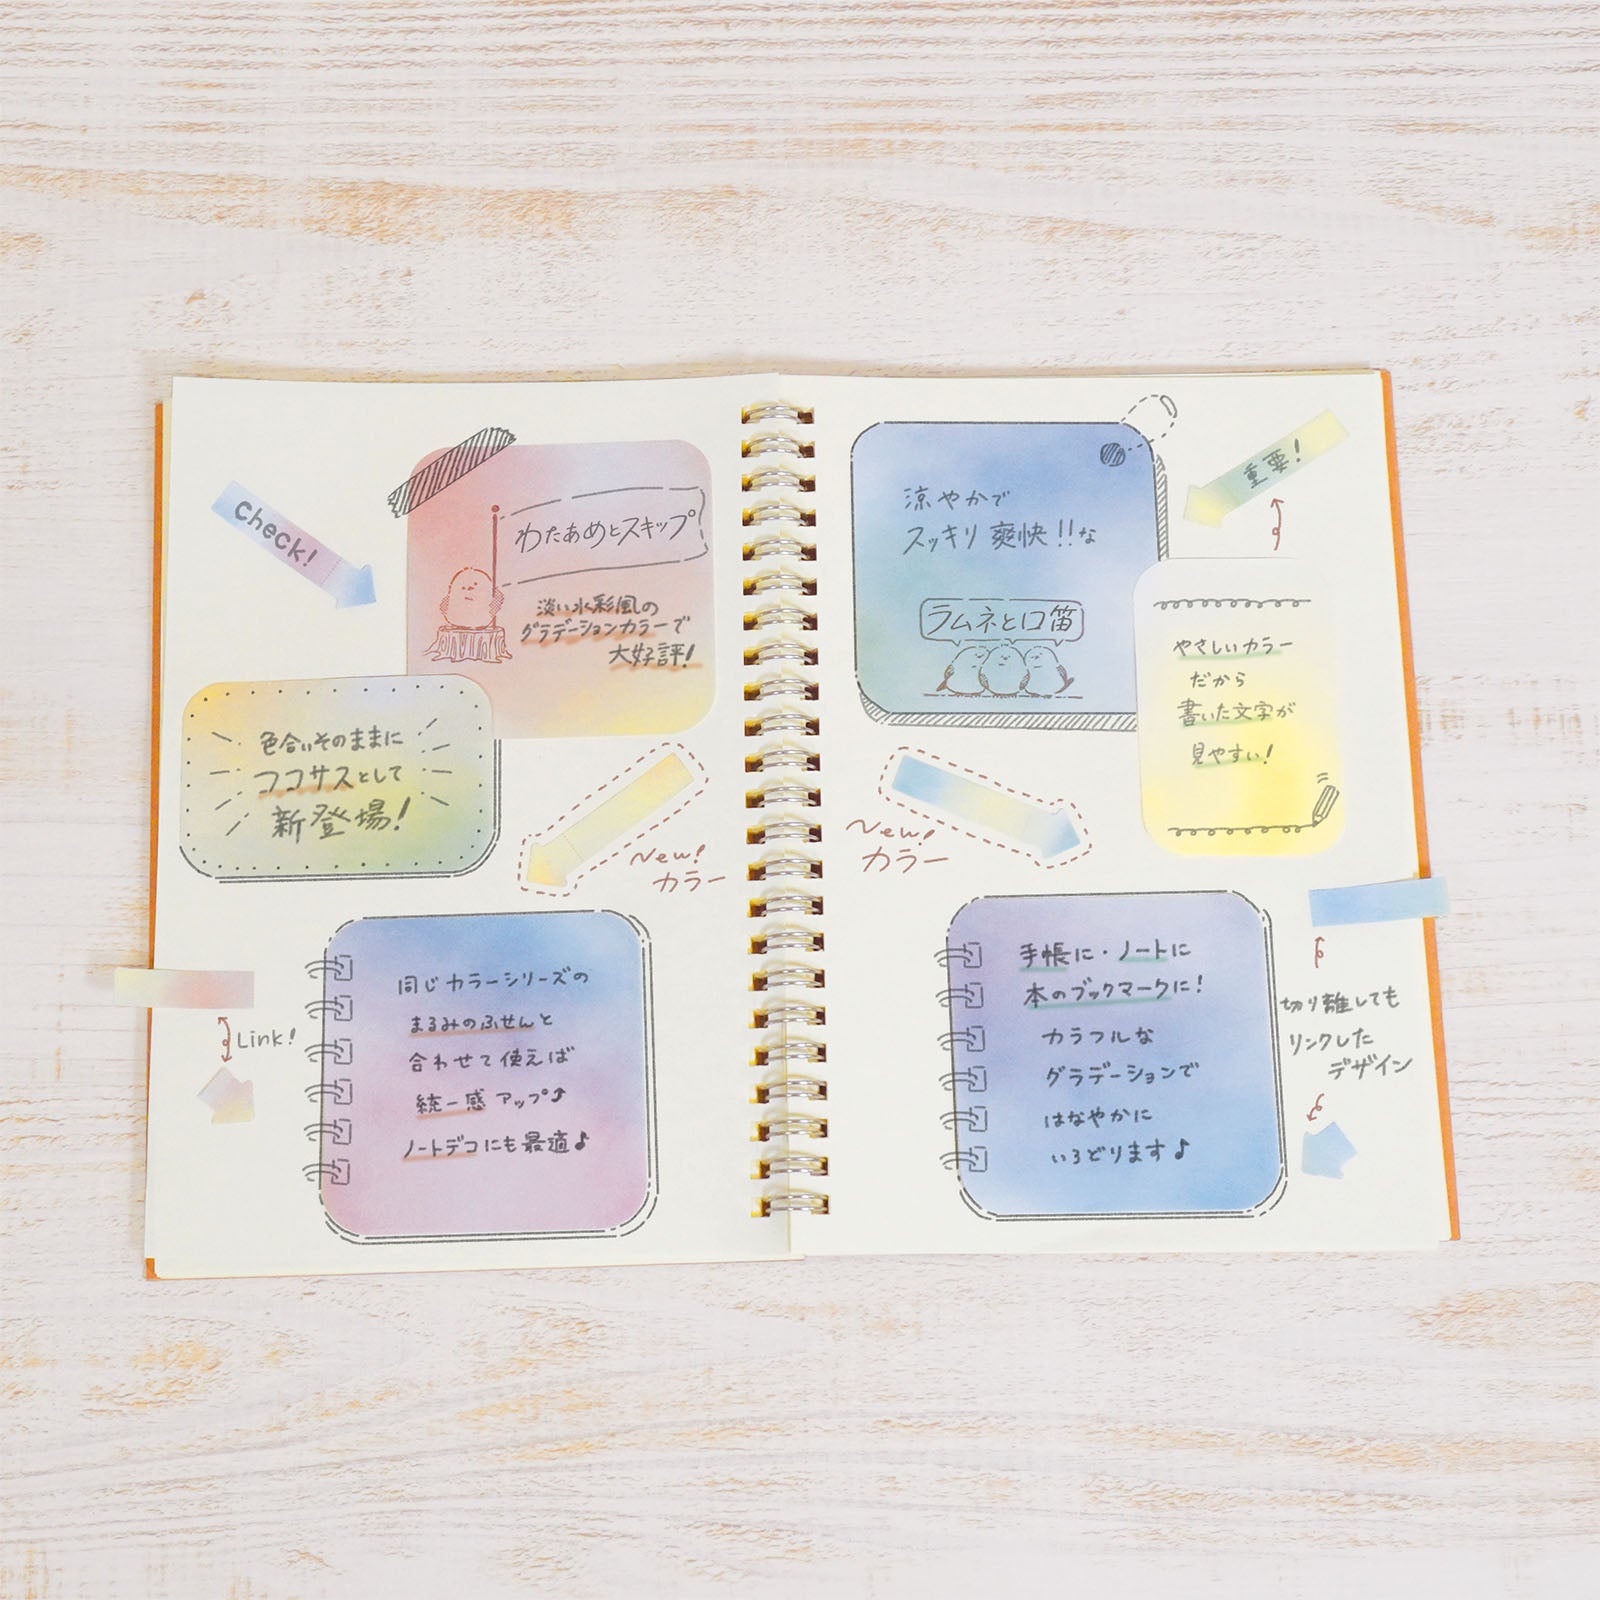 check!
わたあめとスキップ
淡い水彩風の
グラデーションカラーで
大好評!
色合いそのままに
ココサスとして
新登場!
New!
カラー
Link!
同じカラーシリーズの
まるみのふせんと
合わせて使えば
統一感アップ⤴
ノートデコにも最適♪
涼やかで
スッキリ爽快!!な
ラムネと口笛
重要!
やさしいカラー
だから
書いた文字が
見やすい!
New!
カラー
手帳に・ノートに
本のブックマークに!
カラフルな
グラデーションで
はなやかに
いろどります♪
切り離しても
リンクした
デザイン